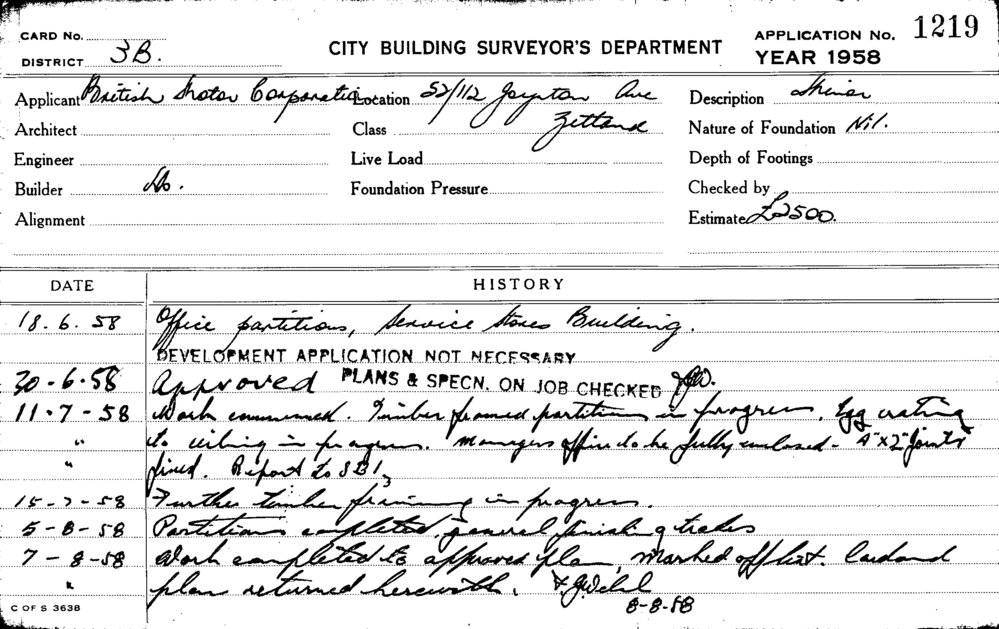 CARD No.
DISTRICT 3B.
CITY BUILDING SURVEYOR'S DEPARTMENT
APPLICATION No. 1219
YEAR 1958
Applicant British Motor Corporation Location 52/112 Joynton Ave Description
Architect Class Zetland Nature of Foundation Nil.
Engineer Live Load Depth of Footings
Builder Do. Foundation Pressure Checked by
Alignment Estimate £2500.
DATE HISTORY
18.6.58 Office partitions, Service Stores Building.
DEVELOPMENT APPLICATION NOT NECESSARY
30-6-58 Approved PLANS & SPECN. ON JOB CHECKED
11-7-58 Work commenced. Timber framed partitions in progress. Egg crating
" to ceiling in progress. Managers office to be fully enclosed - 4"x2" joists
" fixed. Report to
15-7-58 Further timber framing in progress.
5-8-58 Partitions completed, general finishing trades
7-8-58 Work completed to approved plan, marked off list. Card and
" plan returned herewith.
8-8-58
C OF S 3638